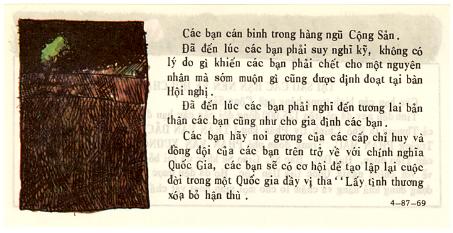 Các bạn cán binh trong hàng ngũ Cộng Sản.
Đã đến lúc các bạn phải suy nghĩ kỹ, không có
lý do gì khiến các bạn phải chết cho một nguyên
nhân mà sớm muộn gì cũng được định đoạt tại bàn
Hội nghị.
Đã đến lúc các bạn phải nghĩ đến tương lai bản
thân các bạn cũng như cho gia định các bạn.
Các bạn hãy noi gương của các cấp chỉ huy và
đồng đội của các bạn trên trở về với chính nghĩa
Quốc Gia, các bạn sẽ có cơ hội để tạo lập lại cuộc
đời trong một Quốc gia đầy vị tha ''Lấy tình thương
xóa bỏ hận thù.
4-87-69